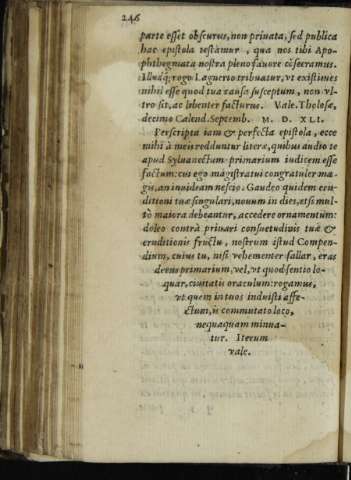 246
parte esset obscurus, non priuata, sed publica
hac epistola testamur, qua nos tibi Apo-
phthegmata nostra pleno fauore cōsecramus.
Illudq; rogo Laguerio tribuatur, vt existimes
nihil esse quod tua causa susceptum, non vl-
tro sit, ac lubenter facturus. Vale. Tholosæ,
decimo Calend. Septemb. M. D. XLI.
Perscripta iam & perfecta epistola, ecce
mihi à meis redduntur literæ, quibus audio te
apud Syluanectum primarium iudicem esse
factum: cui ego magistratui congratuler ma-
gis, an inuideam nescio. Gaudeo quidem eru-
ditioni tuæ singulari, nouum in dies, etsi mul-
tò maiora debeantur, accedere ornamentum:
doleo contrà priuari consuetudinis tuæ &
eruditionis fructu, nostrum istud Compen-
dium, cuius tu, nisi vehementer fallor, eras
decus primarium, vel, vt quod sentio lo-
quar, ciuitatis oraculum: rogamus,
vt quem in nos induisti affe-
ctum, is commutato loco,
nequaquam minua-
tur. Iterum
vale.